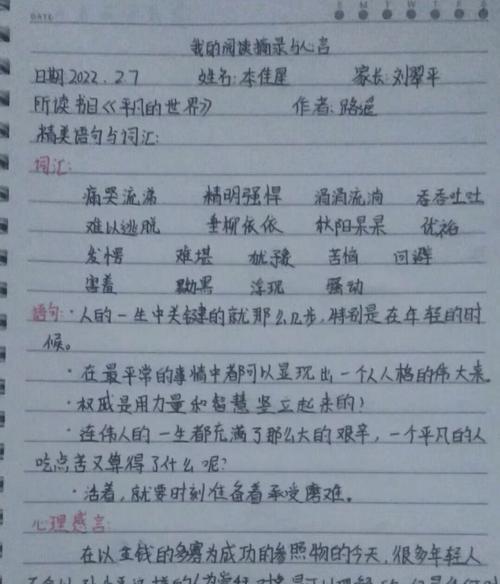 DATE
S M T W T F S
我的阅读摘录与心言
日期2022.2.7 姓名:李佳星 家长:刘翠平
所读书目《平凡的世界》 作者:路遥
精美语句与词汇:
词汇:
痛哭流涕 精明强悍 涓涓流淌 吞吞吐吐
难以逃脱 垂柳依依 秋阳杲杲 优裕
发愣 难堪 犹豫 苦恼 回避
害羞 黝黑 浮现 骚动
语句:·人的一生中关键的就那么几步,特别是在年轻的时
候。
·在最平常的事情中都可以显现出一个人人格的伟大来
·权威是用力量和智慧竖立起来的!
·连伟人的一生都充满了那么大的艰辛,一个平凡的人
吃点苦又算得了什么呢?
·活着,就要时刻准备着承受磨难。
心理感言:
在以金钱的多寡为成功的参照物的今天,很多年轻人